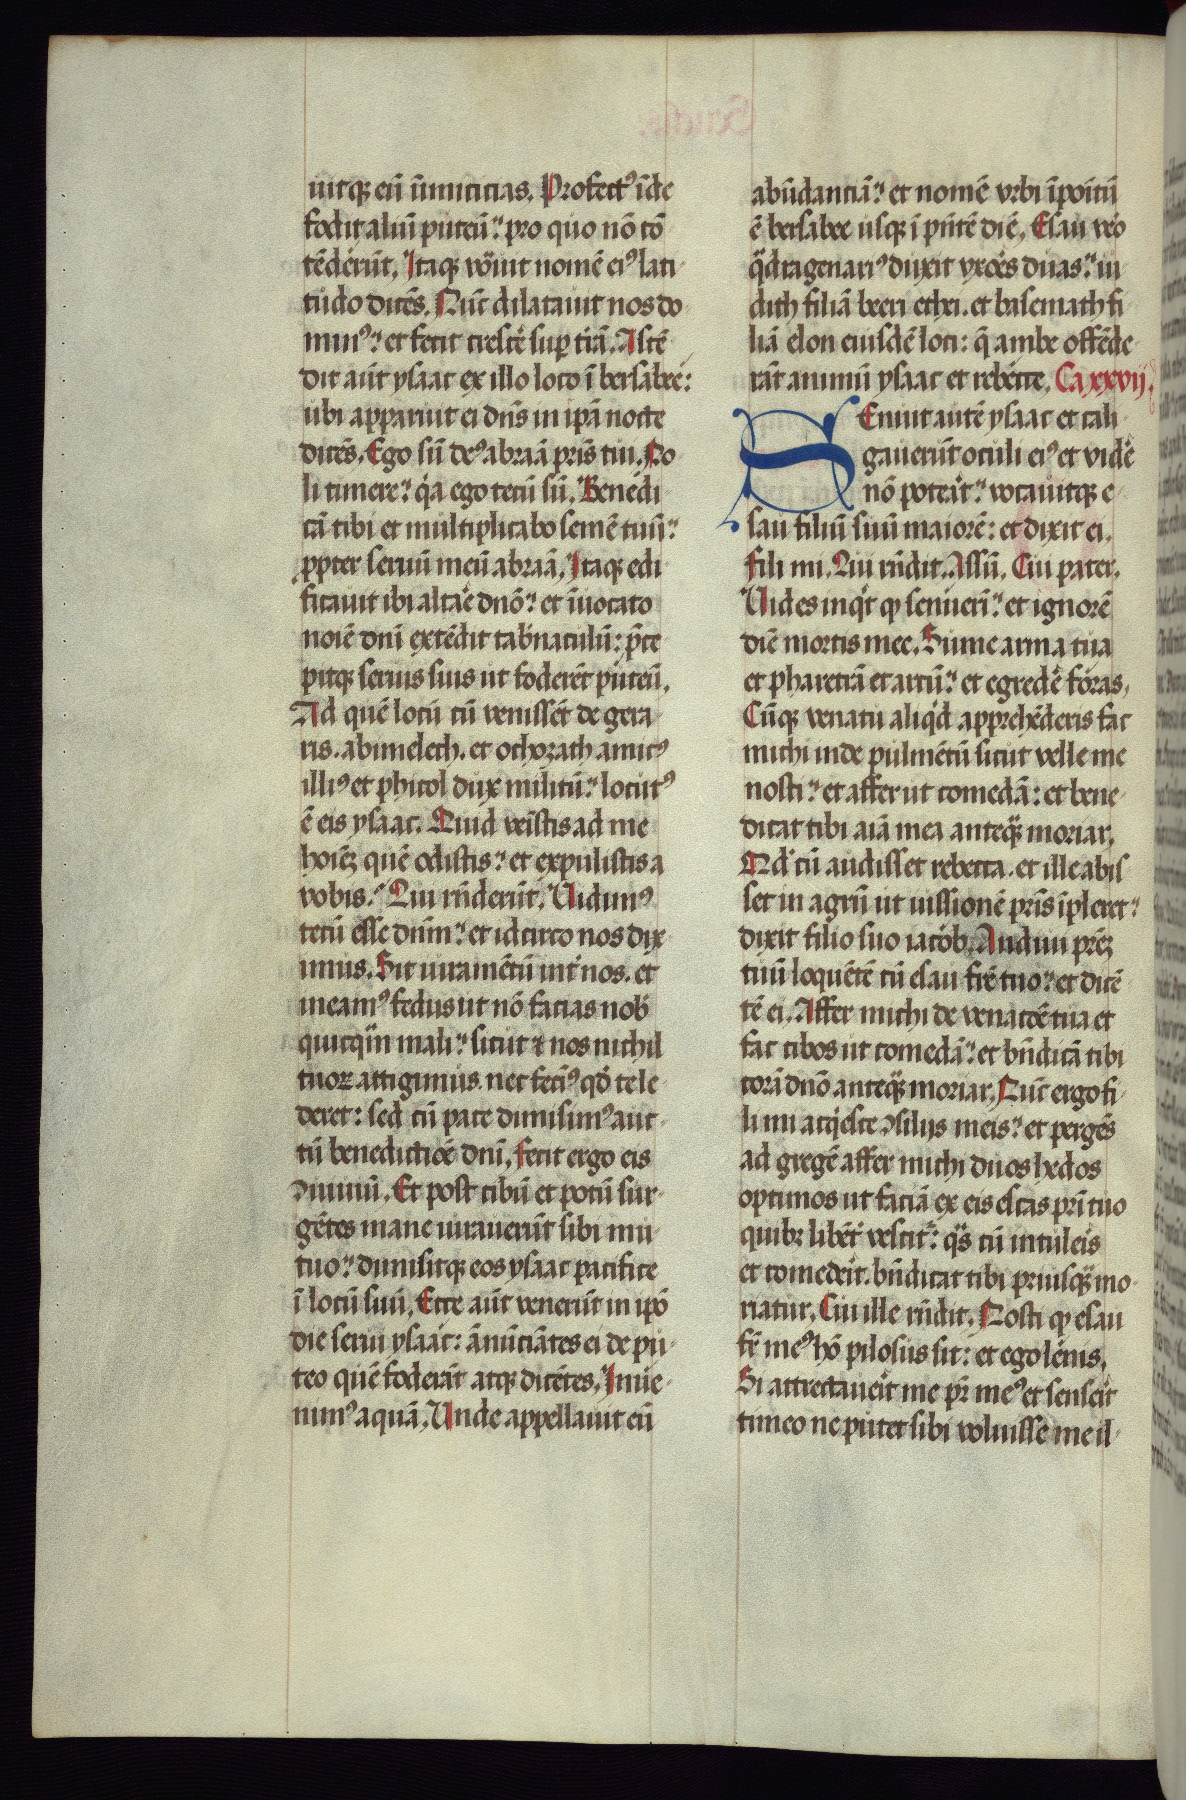 uitq̄ eū īimicicias. Profectꝰ īde
fodit aliū puteū: pro quo nō cō
tēderūt. Itaq̄ vōuit nomē eiꝰ lati
tudo dicēs. Nūc dilatauit nos do
minꝰ: et fecit crescē sup̄ t̄rā. Ascē
dit aūt ysaac ex illo loco ī bersabee:
ubi apparuit ei dn̄s in ip̄a nocte
dicēs. Ego sū deꝰ abraā pr̄is tui. No
li timere: q̇a ego tecū sū. Benedi
cā tibi et multiplicabo semē tuū:
ꝓpter seruū meū abraā. Itaq̄ edi
ficauit ibi altāe dn̄o: et īuocato
noīe dn̄i extēdit tab̄naculū: p̄ce
pitq̄ seruis suis ut foderēt puteū.
Ad quē locū cū venissēt de gera
ris. abimelech. et ochozath amicꝰ
illiꝰ et phicol dux militū: locutꝰ
ē eis ysaac. Quid veīstis ad me
hoīeꝫ quē odistis: et expulistis a
vobis: Qui rn̄derūt. Uidimꝰ
tecū esse dn̄m: et idcirco nos dix
imus. Sit iuramētū int̄ nos. et
ineamꝰ fedus ut nō facias nob̄
quicq̈m mali: sicut ⁊ nos nichil
tuoꝝ attigimus. nec fecīꝰ qd̄ te le
deret: sed cū pace dimisimꝰ auc
tū benedictiōe dn̄i. Fecit ergo eis
ꝯuiuiū. Et post cibū et potū sur
gētes mane iurauerūt sibi mu
tuo: dimisitq̄ eos ysaac pacifice
ī locū suū. Ecce aūt venerūt in ip̄o
die serui ysaac: ānūciātes ei de pu
teo quē foderāt atq̄ dicētes. Inue
nimꝰ aquā. Unde appellauit eū
abūdanciā: et nomē vrbi īpoītū
ē bersabee usq̄ ī pn̄tē diē. Esau v̄o
q̈dragenariꝰ duxit vxōes duas: iu
dith filiā beeri ethei. et basemath fi
liā elon eiusdē loci: q̄ ambe offēde
rāt animū ysaac et rebecce. Ca xxvij
Senuit autē ysaac et cali
gauerūt oculi eiꝰ et vidē
nō potēat: vocauitq̄ e
sau filiū suū maiorē: et dixit ei.
Fili mi. Qui rn̄dit. Assū. Cui pater.
Uides inq̇t ꝙ senuerī: et ignorē
diē mortis mee. Sume arma tua
et pharetrā et arcū: et egredē foras.
Cūq̄ venatu aliq̇d apprehēderis fac
michi inde pulmētū sicut velle me
nosti: et affer ut comedā: et bene
dicat tibi aīa mea anteq̈ moriar.
Qd̓ cū audisset rebecca. et ille abis
set in agrū ut iussionē pr̄is īpleret:
dixit filio suo iacob. Audiui pr̄eꝫ
tuū loquētē cū esau fr̄e tuo: et dicē
tē ei. Affer michi de venacōe tua et
fac cibos ut comedā: et bn̄dicā tibi
corā dn̄o anteq̈ moriar. Nūc ergo fi
li mi acq̇esce ꝯsilijs meis: et pergēs
ad gregē affer michi duos hedos
optimos ut faciā ex eis escas pr̄i tuo
quibꝫ libēt̄ vescit̄: q̈s cū intuleis
et comedeit. bn̄dicat tibi priusq̈ mo
riatur. Cui ille rn̄dit. Nosti ꝙ esau
fr̄ meꝰ hō pilosus sit: et ego lēnis.
Si attrectaueit me pr̄ meꝰ et senseit
timeo ne putet sibi voluisse me il